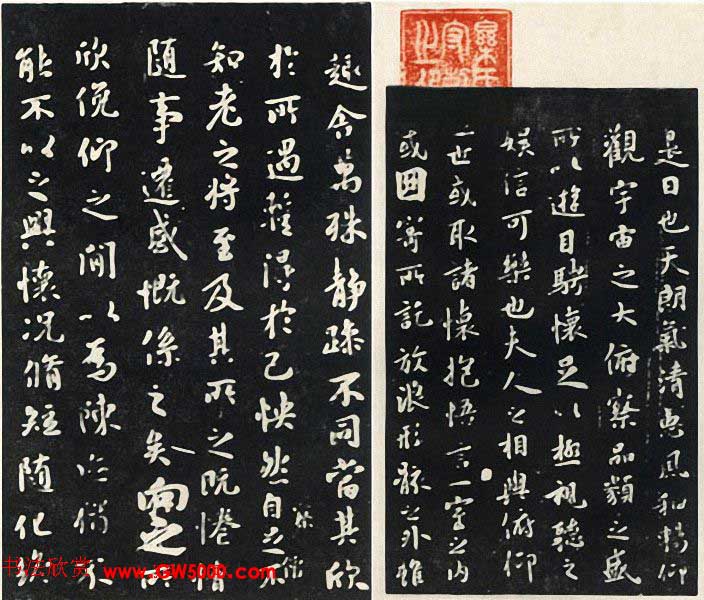 是日也天朗氣清惠風和暢仰
觀宇宙之大俯察品類之盛
所以遊目騁懷足以極視聽之
娛信可樂也夫人之相與俯仰
一世或取諸懷抱悟言一室之內
或因寄所託放浪形骸之外雖
趣舍萬殊靜躁不同當其欣
於所遇暫得於己怏然自足不
知老之將至及其所之既惓情
隨事遷感慨係之矣向之所
欣俛仰之間以為陳迹猶不
能不以之興懷況脩短隨化終
书法欣赏 www.GW5000.com